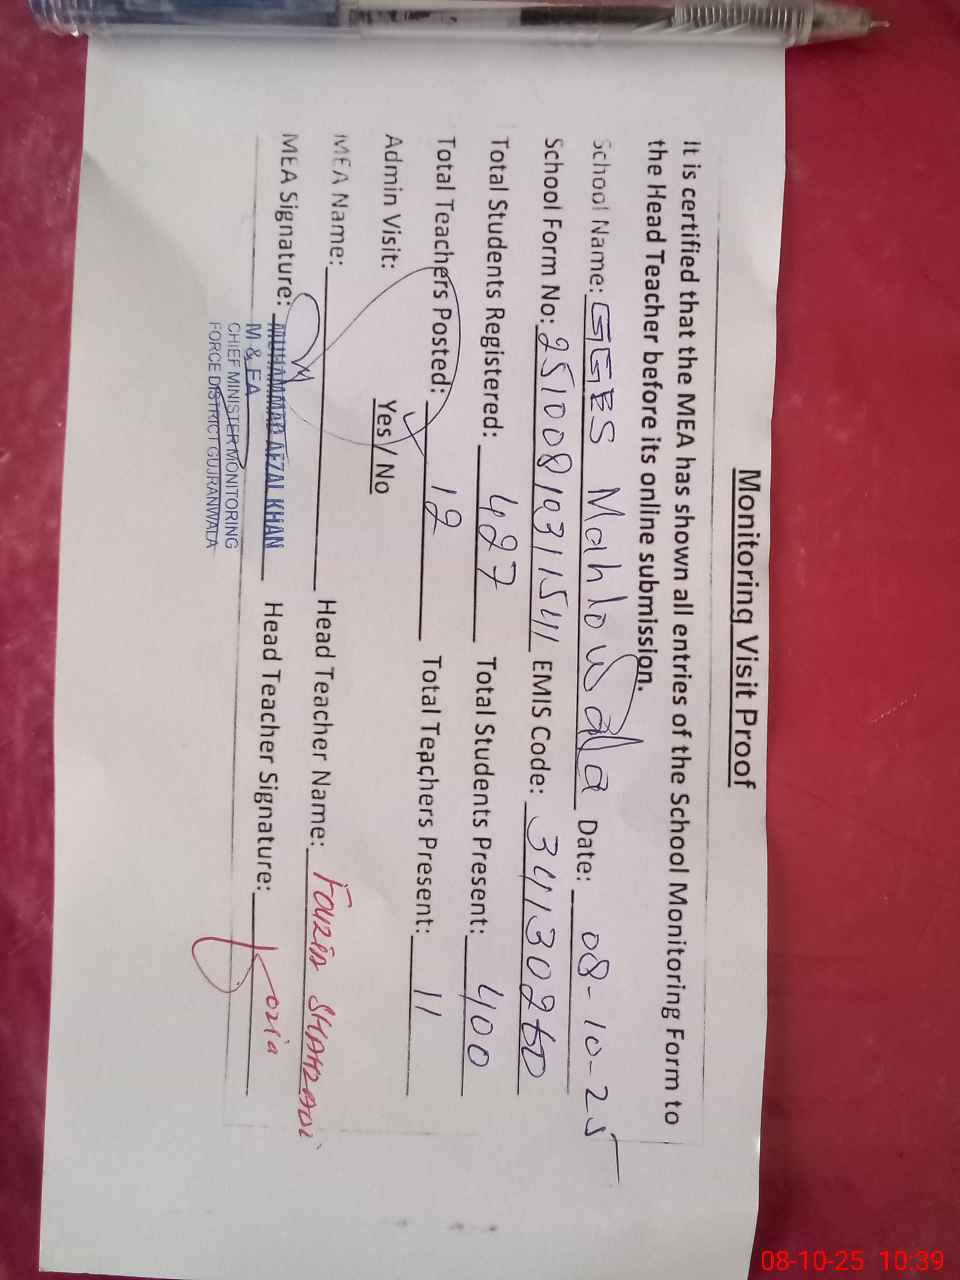 Monitoring Visit Proof
It is certified that the MEA has shown all entries of the School Monitoring Form to
the Head Teacher before its online submission.
School Name: GGES Mahlowala Date: 08-10-25
School Form No: 25100810311541 EMIS Code: 34130260
Total Students Registered: 427 Total Students Present: 400
Total Teachers Posted: 12 Total Teachers Present: 11
Admin Visit: Yes / No
MEA Name: Head Teacher Name: FOUZIA SHAHZADI
MEA Signature: MUHAMMAD AFZAL KHAN Head Teacher Signature: Fozia
M & EA
CHIEF MINISTER MONITORING
FORCE DISTRICT GUJRANWALA
08-10-25 10:39